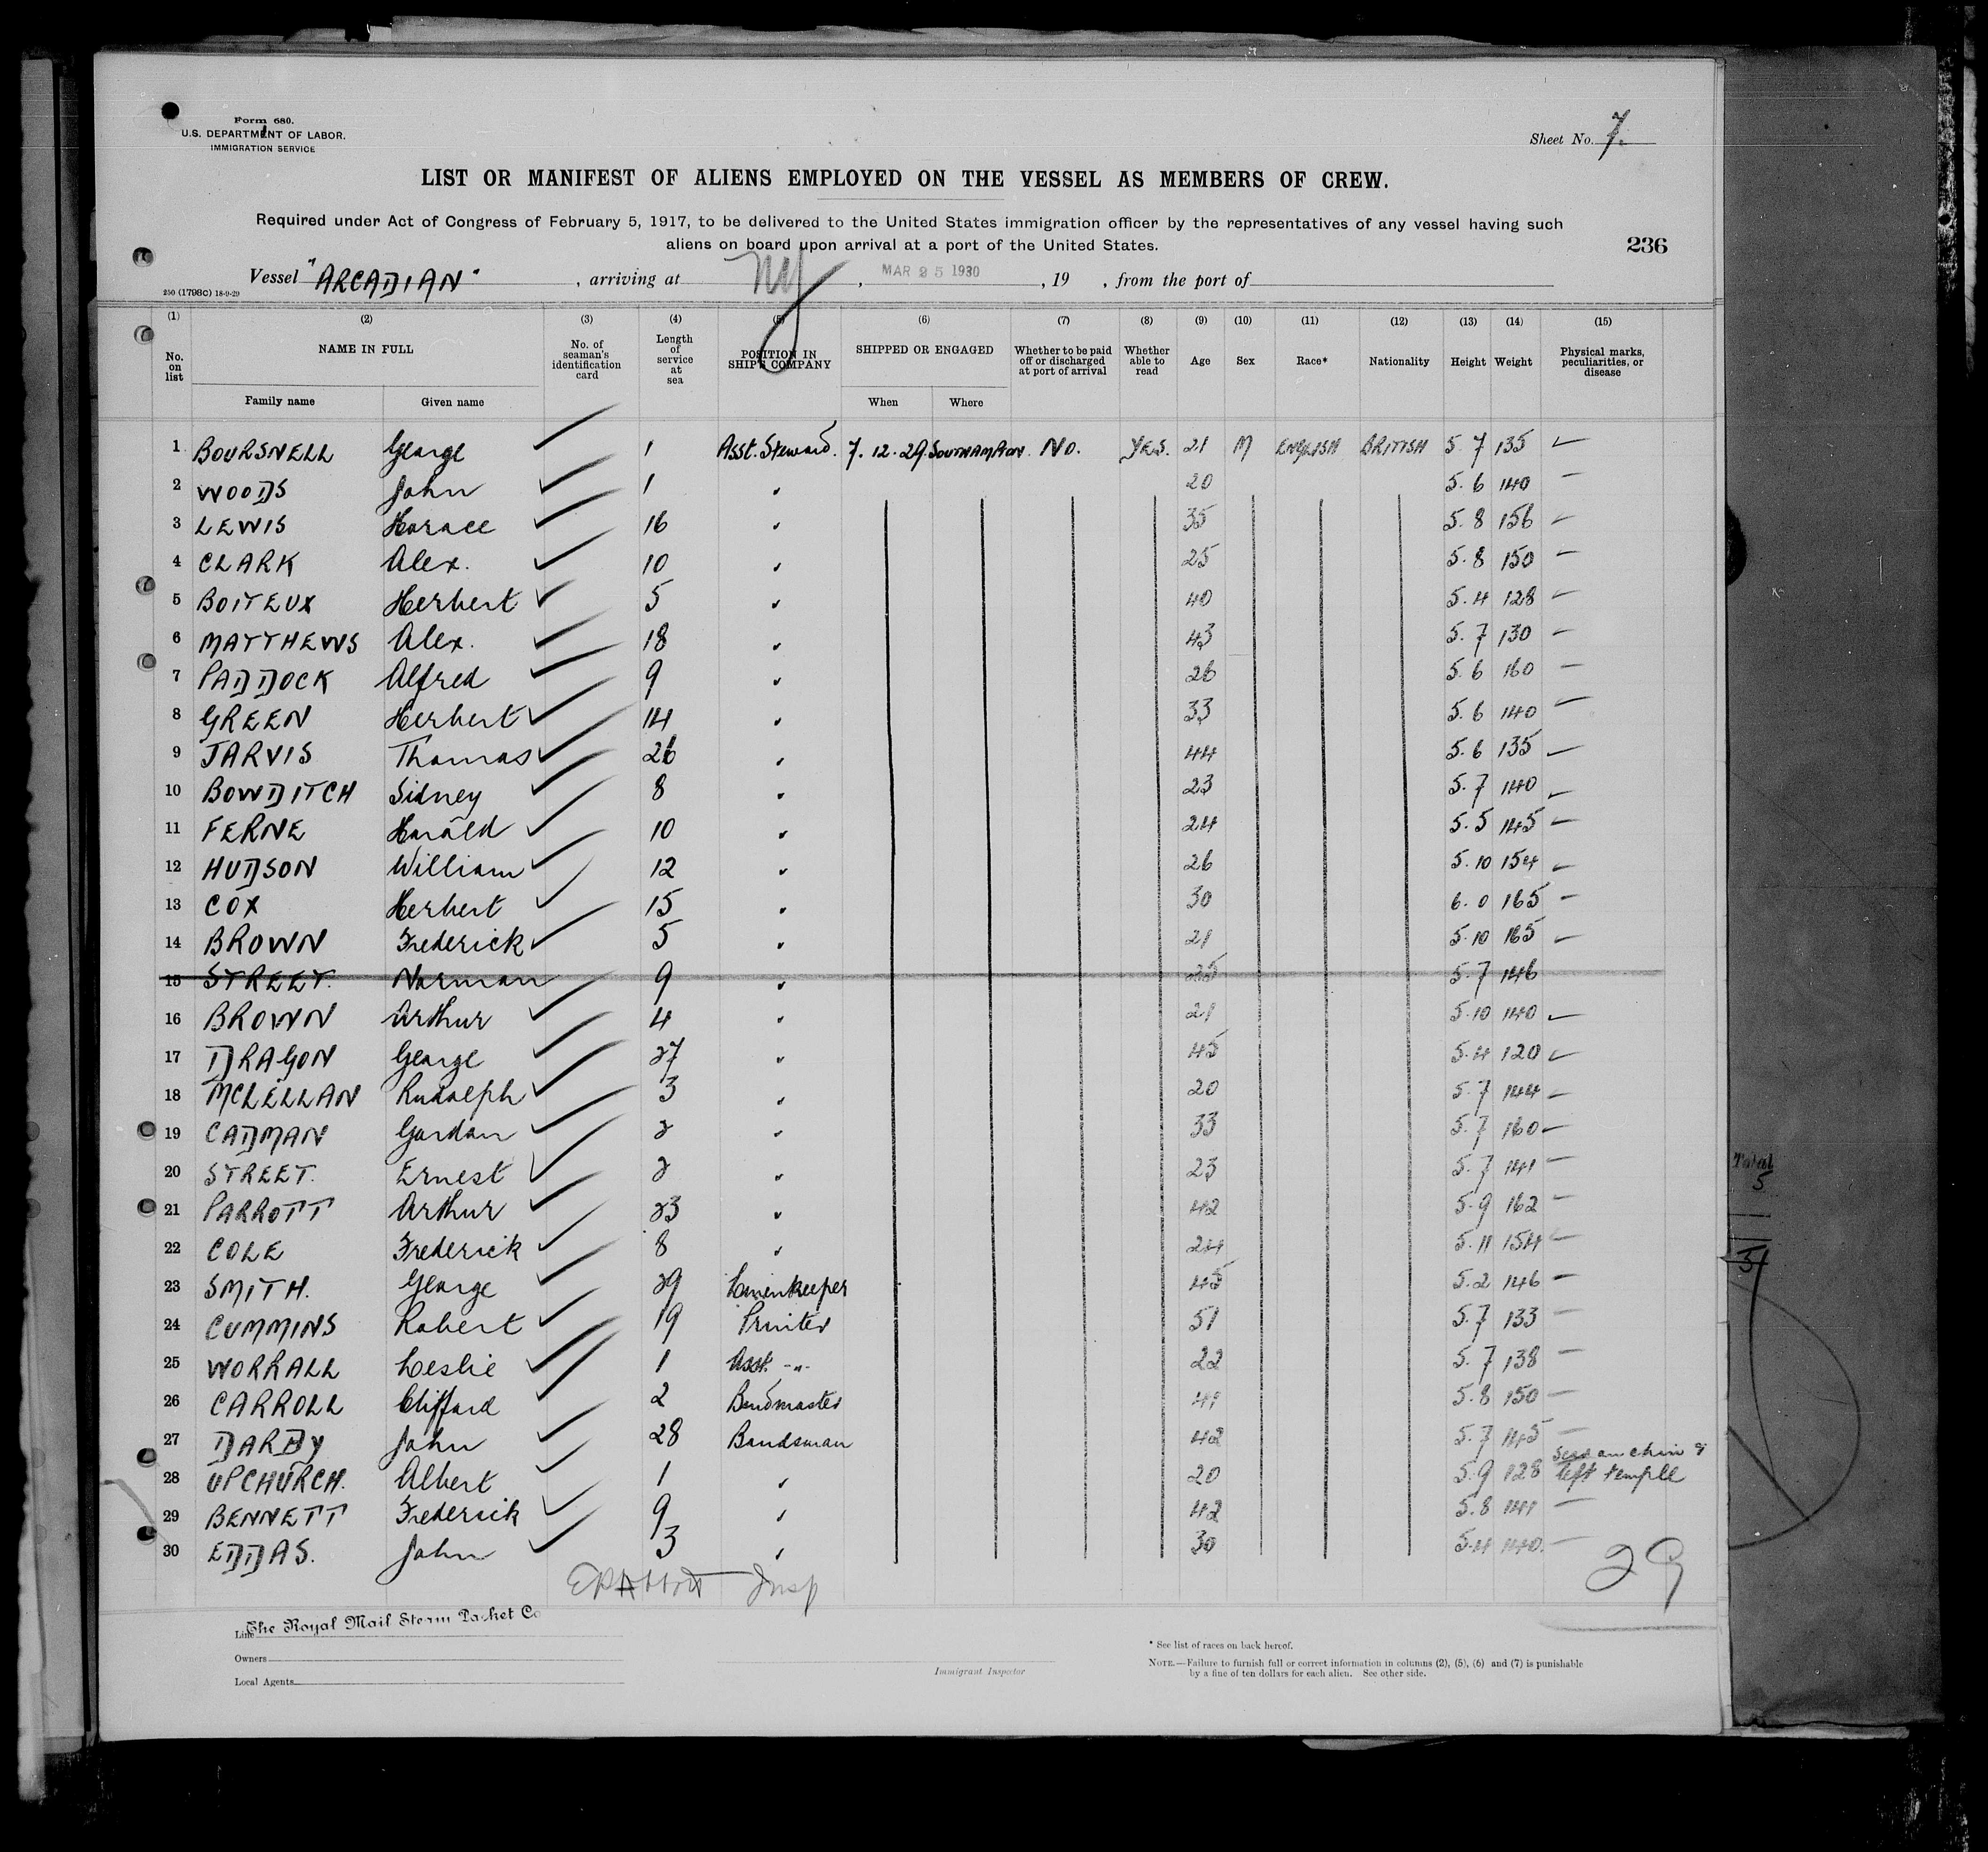 Form 680.
U.S. DEPARTMENT OF LABOR.
IMMIGRATION SERVICE
Sheet No. 7.
LIST OR MANIFEST OF ALIENS EMPLOYED ON THE VESSEL AS MEMBERS OF CREW.
Required under Act of Congress of February 5, 1917, to be delivered to the United States immigration officer by the representatives of any vessel having such
aliens on board upon arrival at a port of the United States.
236
Vessel "ARCADIAN" , arriving at NY , MAR 25 1930 , 19 , from the port of
250 (1798c) 18-9-29
(1) (2) (3) (4) (5) (6) (7) (8) (9) (10) (11) (12) (13) (14) (15)
No. on list NAME IN FULL No. of seaman's identification card Length of service at sea POSITION IN SHIP'S COMPANY SHIPPED OR ENGAGED Whether to be paid off or discharged at port of arrival Whether able to read Age Sex Race* Nationality Height Weight Physical marks, peculiarities, or disease
Family name Given name When Where
1 BOURSNELL George 1 Asst. Steward. 7.12.29. SOUTHAMPTON NO. YES. 21 M ENGLISH BRITISH 5 7 135 —
2 WOODS John 1 " 20 5.6 140 —
3 LEWIS Horace 16 " 35 5.8 156 —
4 CLARK Alex. 10 " 25 5.8 150 —
5 BOITEUX Herbert 5 " 40 5.4 128 —
6 MATTHEWS Alex. 18 " 43 5.7 130 —
7 PADDOCK Alfred 9 " 26 5.6 160 —
8 GREEN Herbert 14 " 33 5.6 140 —
9 JARVIS Thomas 26 " 44 5.6 135 —
10 BOWDITCH Sidney 8 " 23 5.7 140 —
11 FERNE Harald 10 " 24 5.5 145 —
12 HUDSON William 12 " 26 5.10 154 —
13 COX Herbert 15 " 30 6.0 165 —
14 BROWN Frederick 5 " 21 5.10 165 —
15 STREET. Norman 9 " 25 5.7 146
16 BROWN Arthur 4 " 21 5.10 140 —
17 DRAGON George 27 " 45 5.4 120 —
18 MCLELLAN Rudolph 3 " 20 5.7 144 —
19 CADMAN Gordon 2 " 33 5.7 160 —
20 STREET. Ernest 2 " 23 5.7 141 —
21 PARROTT Arthur 23 " 42 5.9 162 —
22 COLE Frederick 8 " 24 5.11 154 —
23 SMITH. George 29 Linenkeeper 45 5.2 146 —
24 CUMMINS Robert 19 Printer 51 5.7 133 —
25 WORRALL Leslie 1 Asst. -"- 22 5.7 138 —
26 CARROLL Clifford 2 Bandmaster 41 5.8 150 —
27 DARBY John 28 Bandsman 42 5.7 145 —
28 UPCHURCH. Albert 1 " 20 5.9 128 Scar on chin & left temple
29 BENNETT Frederick 9 " 42 5.8 141 —
30 EDDAS. John 3 " 30 5.4 140. —
Insp
29
Line The Royal Mail Steam Packet Co
Owners
Local Agents
Immigrant Inspector
* See list of races on back hereof.
NOTE.—Failure to furnish full or correct information in columns (2), (5), (6) and (7) is punishable
by a fine of ten dollars for each alien. See other side.
Total
5
51